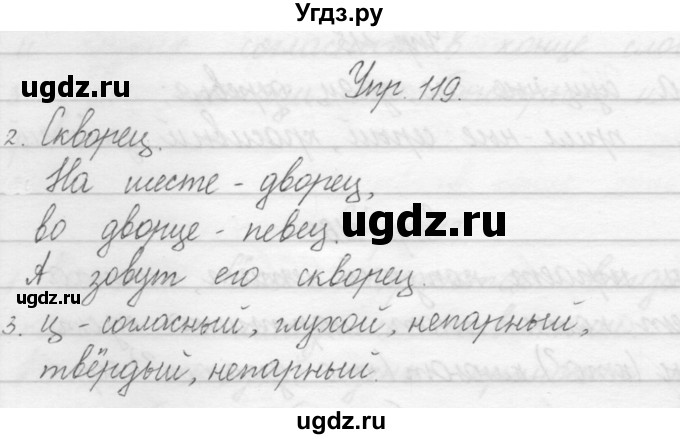 Угдз.ру
ugdz.ru
Упр. 119.
2. Скворец.
На шесте - дворец,
во дворце - певец.
ugdz.ru
А зовут его скворец.
ugdz.ru
3. ц - согласный, глухой, непарный,
твёрдый, непарный.
ugdz.ru
ugdz.ru